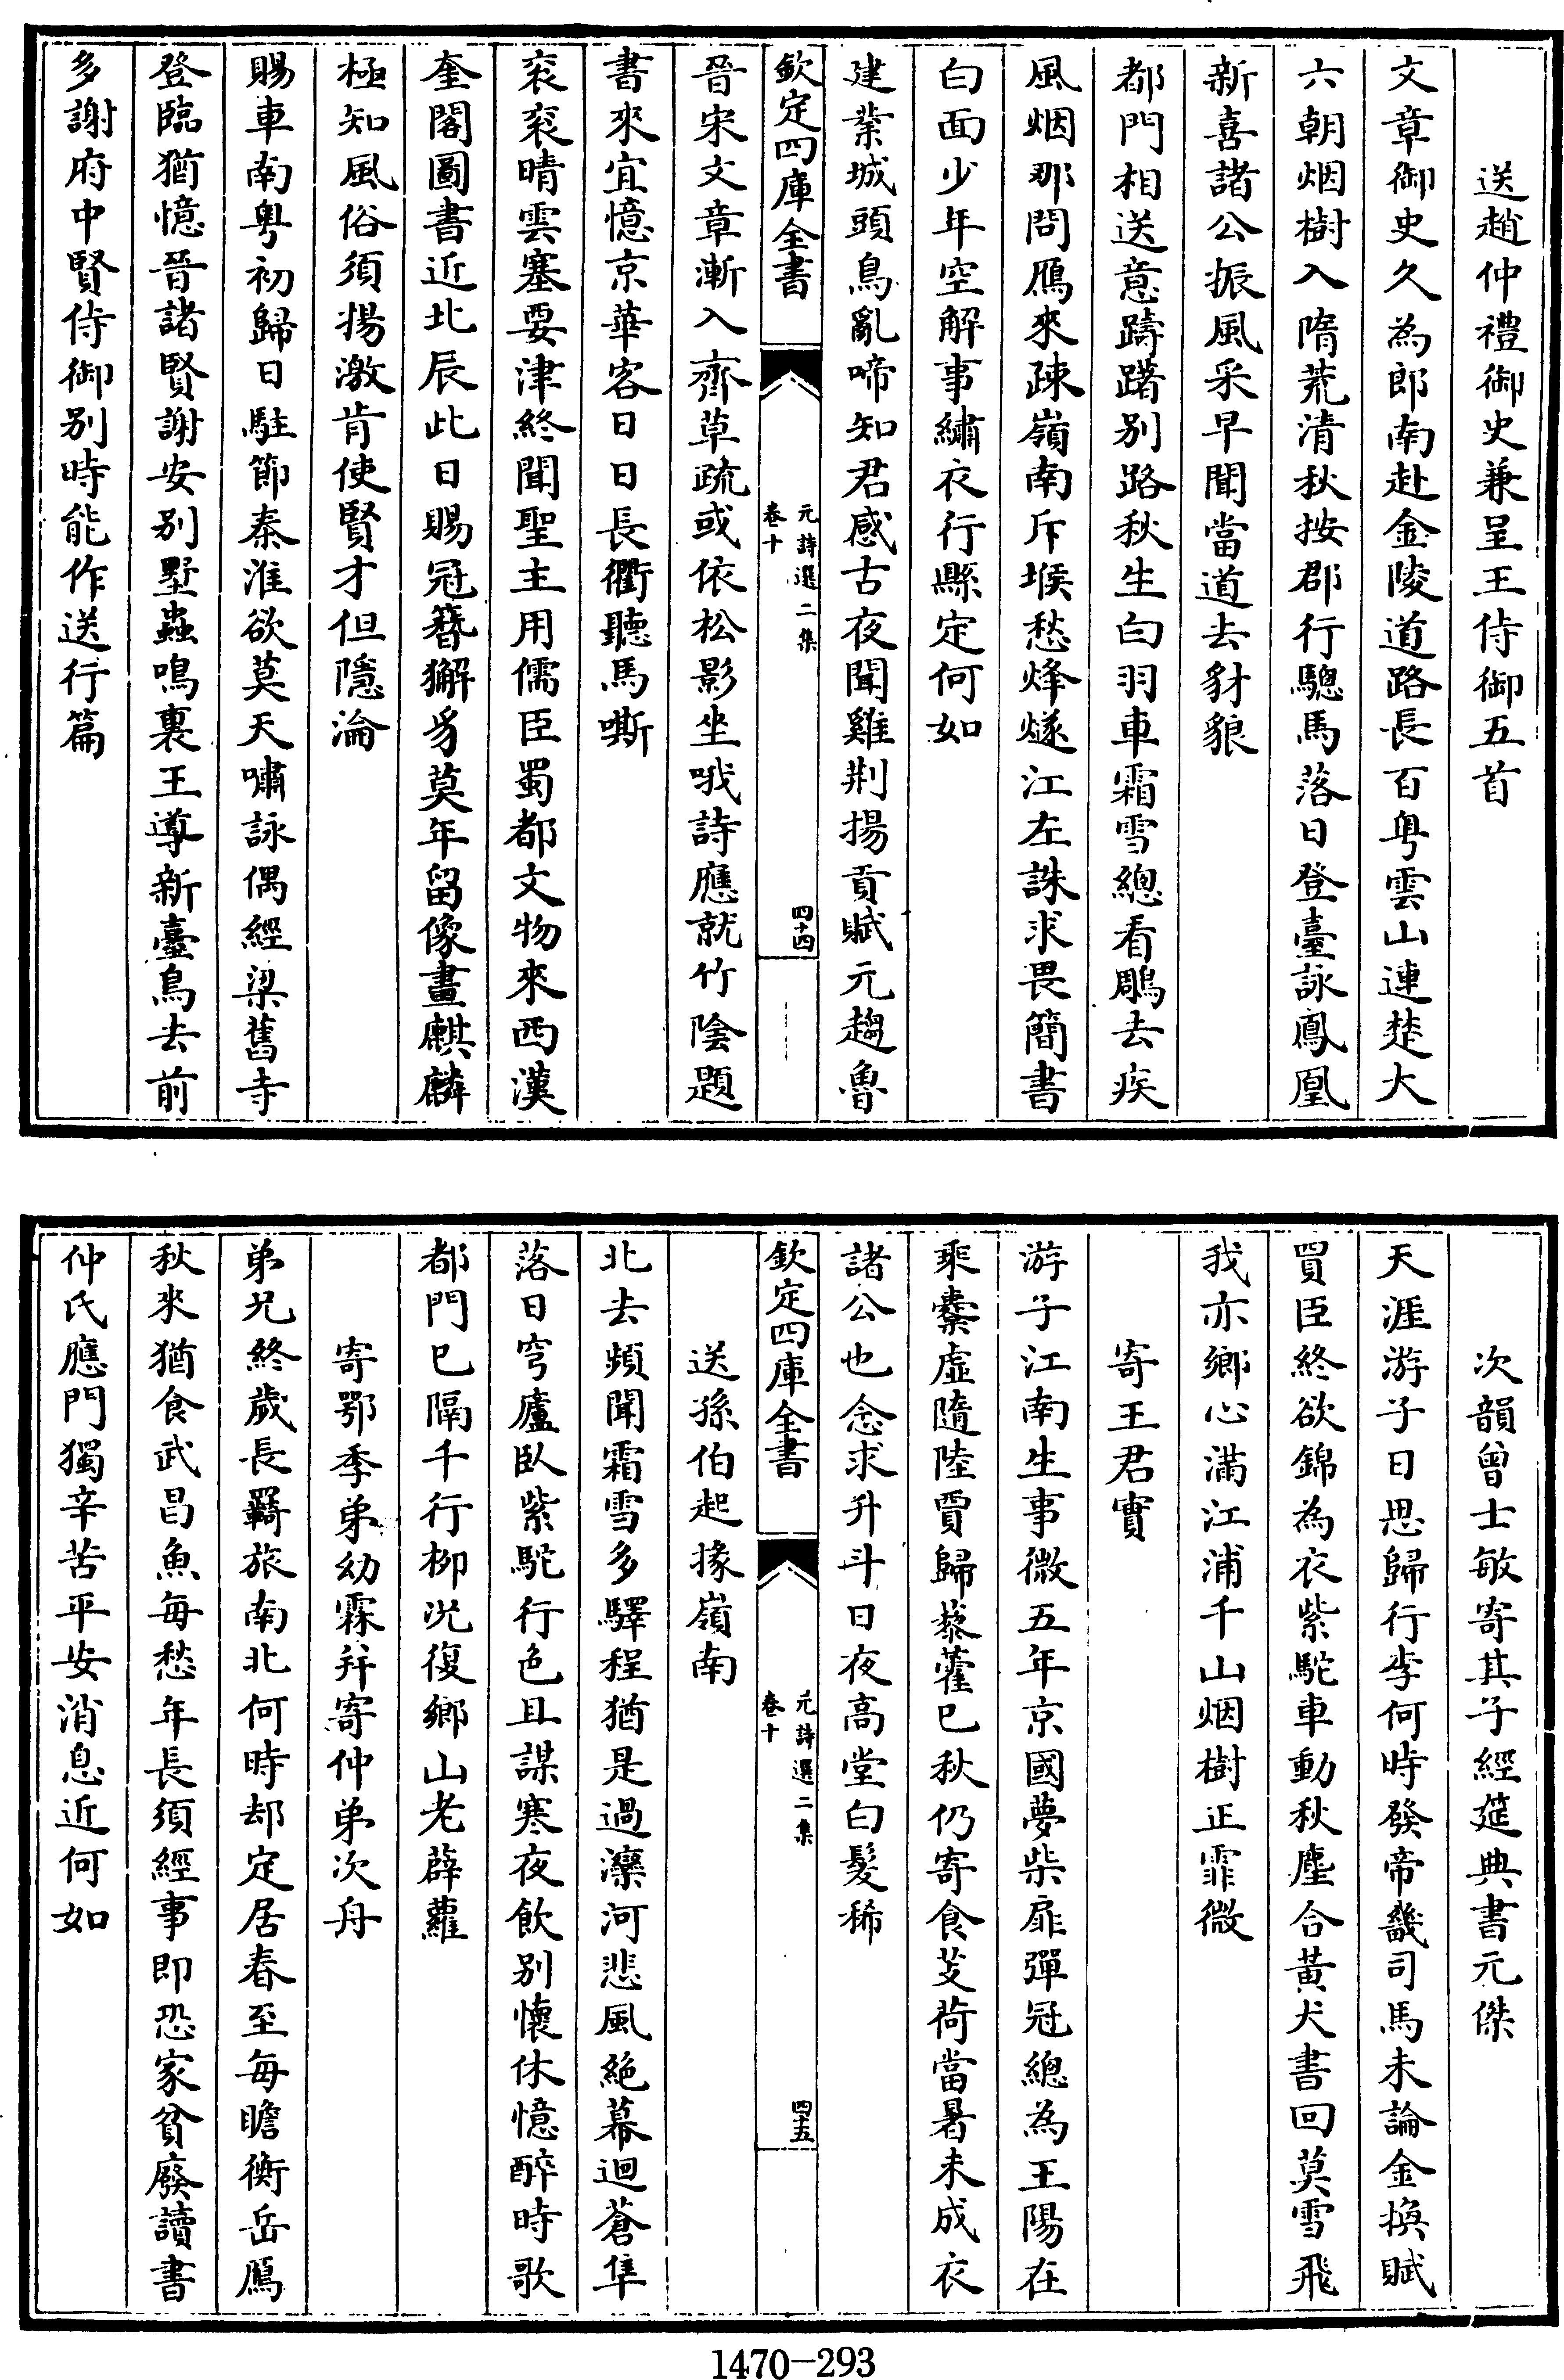 送趙仲禮御史兼呈王侍御五首
文章御史久為郎南赴金陵道路長百粤雲山連楚大
六朝烟樹入隋荒清秋按郡行驄馬落日登臺詠鳳凰
新喜諸公振風采早聞當道去豺狼
都門相送意躊躇别路秋生白羽車霜雪總看鵰去疾
風烟那問鴈來疎嶺南斥堠愁烽燧江左誅求畏簡書
白面少年空解事繡衣行縣定何如
建業城頭烏亂啼知君感古夜聞雞荆揚貢賦元趨魯
欽定四庫全書
元詩選二集
卷十
四十四
晉宋文章漸入齊草疏或依松影坐哦詩應就竹陰題
書來宜憶京華客日日長衢聽馬嘶
衮衮晴雲塞要津終聞聖主用儒臣蜀都文物來西漢
奎閣圖書近北辰此日賜冠簪獬豸莫年留像畫麒麟
極知風俗須揚激肯使賢才但隱淪
賜車南粤初歸日駐節秦淮欲莫天嘯詠偶經梁舊寺
登臨猶憶晉諸賢謝安别墅蟲鳴裏王導新臺鳥去前
多謝府中賢侍御别時能作送行篇
次韻曾士敏寄其子經筵典書元傑
天涯游子日思歸行李何時發帝畿司馬未論金換賦
買臣終欲錦為衣紫駝車動秋塵合黃犬書回莫雪飛
我亦鄉心滿江浦千山烟樹正霏微
寄王君實
游子江南生事微五年京國夢柴扉彈冠總為王陽在
乘橐虛隨陸賈歸藜藿已秋仍寄食芰荷當暑未成衣
諸公也念求升斗日夜高堂白髮稀
欽定四庫全書
元詩選二集
卷十
四十五
送孫伯起掾嶺南
北去頻聞霜雪多驛程猶是過灤河悲風絶幕迴蒼隼
落日穹廬臥紫駝行色且謀寒夜飲别懷休憶醉時歌
都門已隔千行栁況復鄉山老薜蘿
寄鄂季弟幼霖并寄仲弟次舟
弟兄終歲長羈旅南北何時却定居春至每瞻衡岳鴈
秋來猶食武昌魚每愁年長須經事即恐家貧廢讀書
仲氏應門獨辛苦平安消息近何如
1470-293